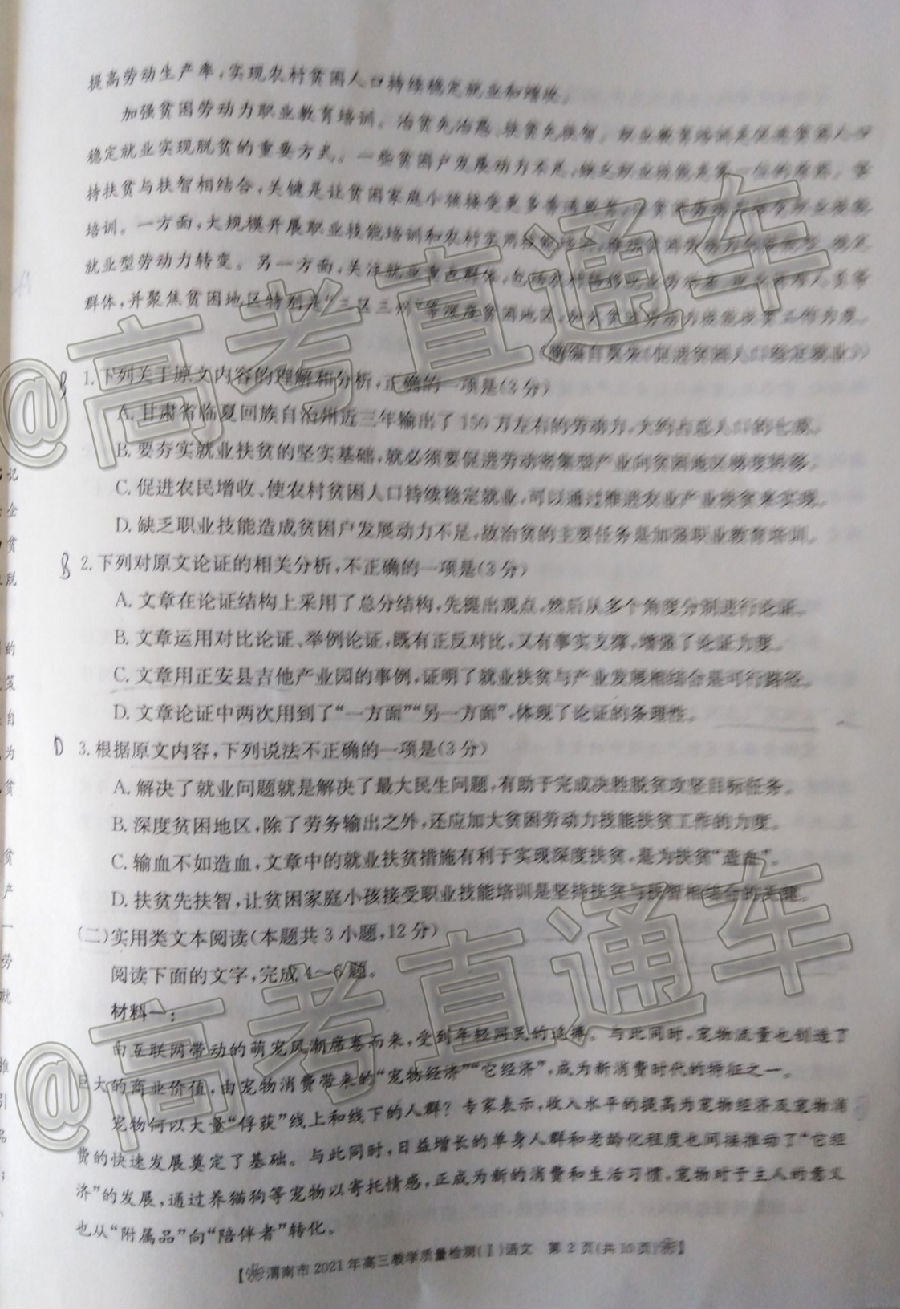 提高劳动生产率，实现农村贫困人口持续稳定就业和增收。
加强贫困劳动力职业教育培训。治贫先治愚，扶贫先扶智。职业教育培训是促进贫困人口
稳定就业实现脱贫的重要方式。一些贫困户发展动力不足，缺乏职业技能是第一位的原因。坚
持扶贫与扶智相结合，关键是让贫困家庭小孩接受更多普通教育，
培训。一方面，大规模开展职业技能培训和农村实用技能培训，
就业型劳动力转变。另一方面，关注就业重点群体，
群体，并聚焦贫困地区特别是“三区三州”等深度贫困地区，加大贫困劳动力技能扶贫工作力度。
(摘编自 《促进贫困人口稳定就业》)
B 1.下列关于原文内容的理解和分析，正确的一项是(3分)
A.甘肃省临夏回族自治州近三年输出了150万左右的劳动力，大约占总人口的七成。
B.要夯实就业扶贫的坚实基础，就必须要促进劳动密集型产业向贫困地区梯度转移。
C.促进农民增收、使农村贫困人口持续稳定就业，可以通过推进农业产业扶贫来实现。
D.缺乏职业技能造成贫困户发展动力不足，故治贫的主要任务是加强职业教育培训。
B 2.下列对原文论证的相关分析，不正确的一项是(3分)
A.文章在论证结构上采用了总分结构，先提出观点，然后从多个角度分别进行论证。
B.文章运用对比论证、举例论证，既有正反对比，又有事实支撑，增强了论证力度。
C.文章用正安县吉他产业园的事例，证明了就业扶贫与产业发展相结合是可行路径。
D.文章论证中两次用到了“一方面”“另一方面”，体现了论证的条理性。
D 3.根据原文内容，下列说法不正确的一项是(3分)
A.解决了就业问题就是解决了最大民生问题，有助于完成决胜脱贫攻坚目标任务。
B.深度贫困地区，除了劳务输出之外，还应加大贫困劳动力技能扶贫工作的力度。
C.输血不如造血，文章中的就业扶贫措施有利于实现深度扶贫，是为扶贫“造血”。
D.扶贫先扶智，让贫困家庭小孩接受职业技能培训是坚持扶贫与扶智相结合的关键。
(二)实用类文本阅读(本题共3小题，12分)
阅读下面的文字，完成4～6题。
材料一：
由互联网带动的萌宠风潮席卷而来，受到年轻网民的追捧。与此同时，宠物流量也创造了
巨大的商业价值，由宠物消费带来的“宠物经济”“它经济”，成为新消费时代的特征之一。
宠物何以大量“俘获”线上和线下的人群？专家表示，收入水平的提高为宠物经济及宠物消
费的快速发展奠定了基础。与此同时，日益增长的单身人群和老龄化程度也间接推动了“它经
济”的发展，通过养猫狗等宠物以寄托情感，正成为新的消费和生活习惯，宠物对于主人的意义
也从“附属品”向“陪伴者”转化。
【渭南市2021年高三教学质量检测(Ⅰ)语文 第2页(共10页)】
@高考直通车
@高考直通车